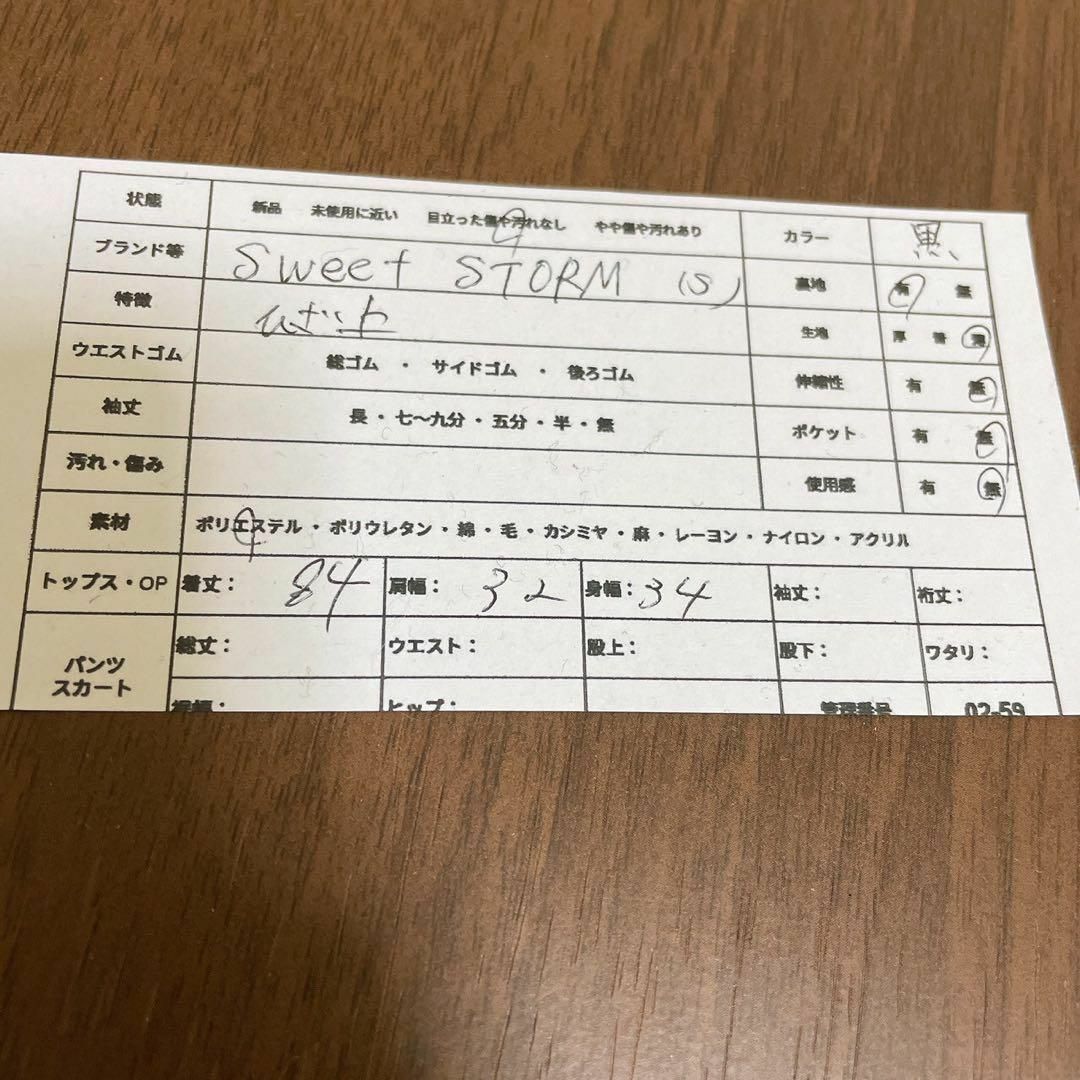 状態 新品 未使用に近い 目立った傷や汚れなし やや傷や汚れあり カラー 黒
ブランド等 Sweet STORM (S) 裏地 有 無
特徴 生地 厚 普 薄
ウエストゴム 総ゴム ・ サイドゴム ・ 後ろゴム 伸縮性 有 無
袖丈 長 ・ 七～九分 ・ 五分 ・ 半 ・ 無 ポケット 有 無
汚れ・傷み 使用感 有 無
素材 ポリエステル ・ ポリウレタン ・ 綿 ・ 毛 ・ カシミヤ ・ 麻 ・ レーヨン ・ ナイロン ・ アクリル
トップス・OP 着丈： 84 肩幅： 32 身幅： 34 袖丈： 裄丈：
パンツ
スカート
総丈： ウエスト： 股上： 股下： ワタリ：
裾幅： ヒップ： 管理番号 02-59